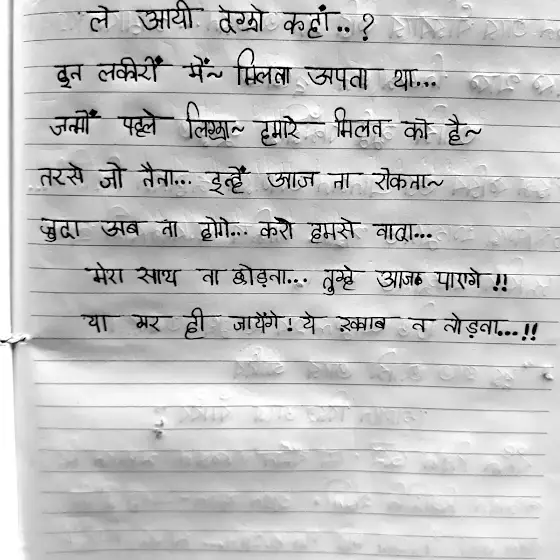 ले आयी देखो कहाँ..?
इन लकीरों में~ मिलना अपना था...
जन्मों पहले लिखा~ हमारे मिलन को है~
तरसे जो नैना... इन्हें आज ना रोकना~
जुदा अब ना होंगे... करो हमसे वादा...
मेरा साथ ना छोड़ना... तुम्हे आज पाएगे !!
या मर ही जायेंगे ! ये ख्वाब न तोड़ना...!!